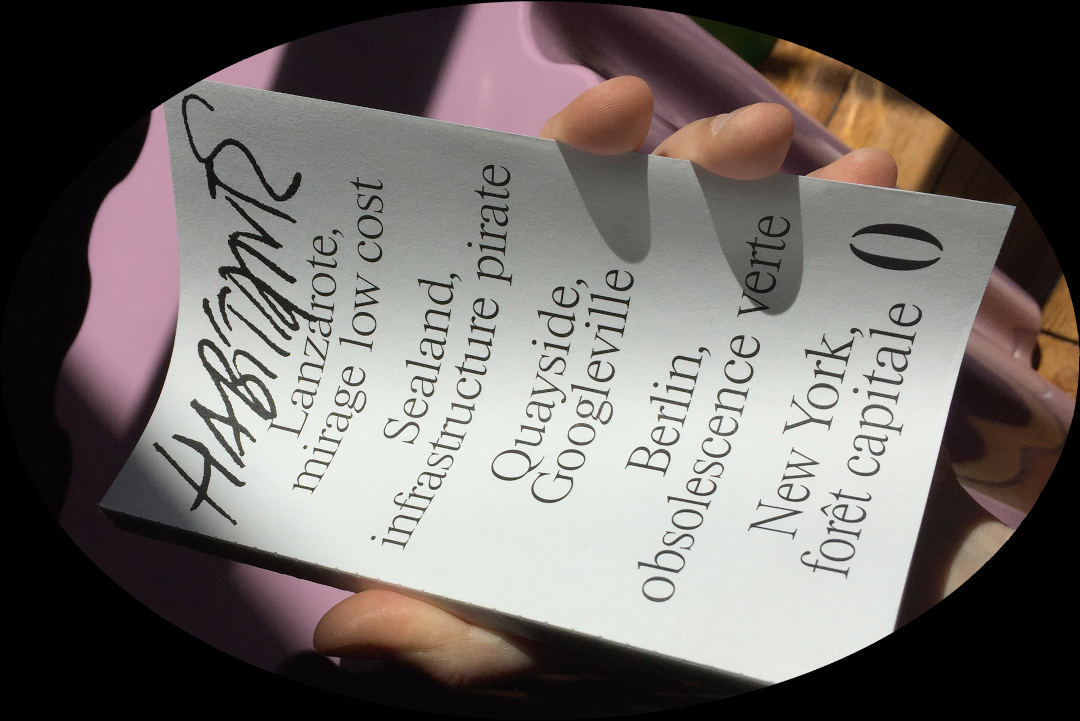 HABITANTS
Lanzarote,
mirage low cost
Sealand,
infrastructure pirate
Quayside,
Googleville
Berlin,
obsolescence verte
New York,
forêt capitale
0